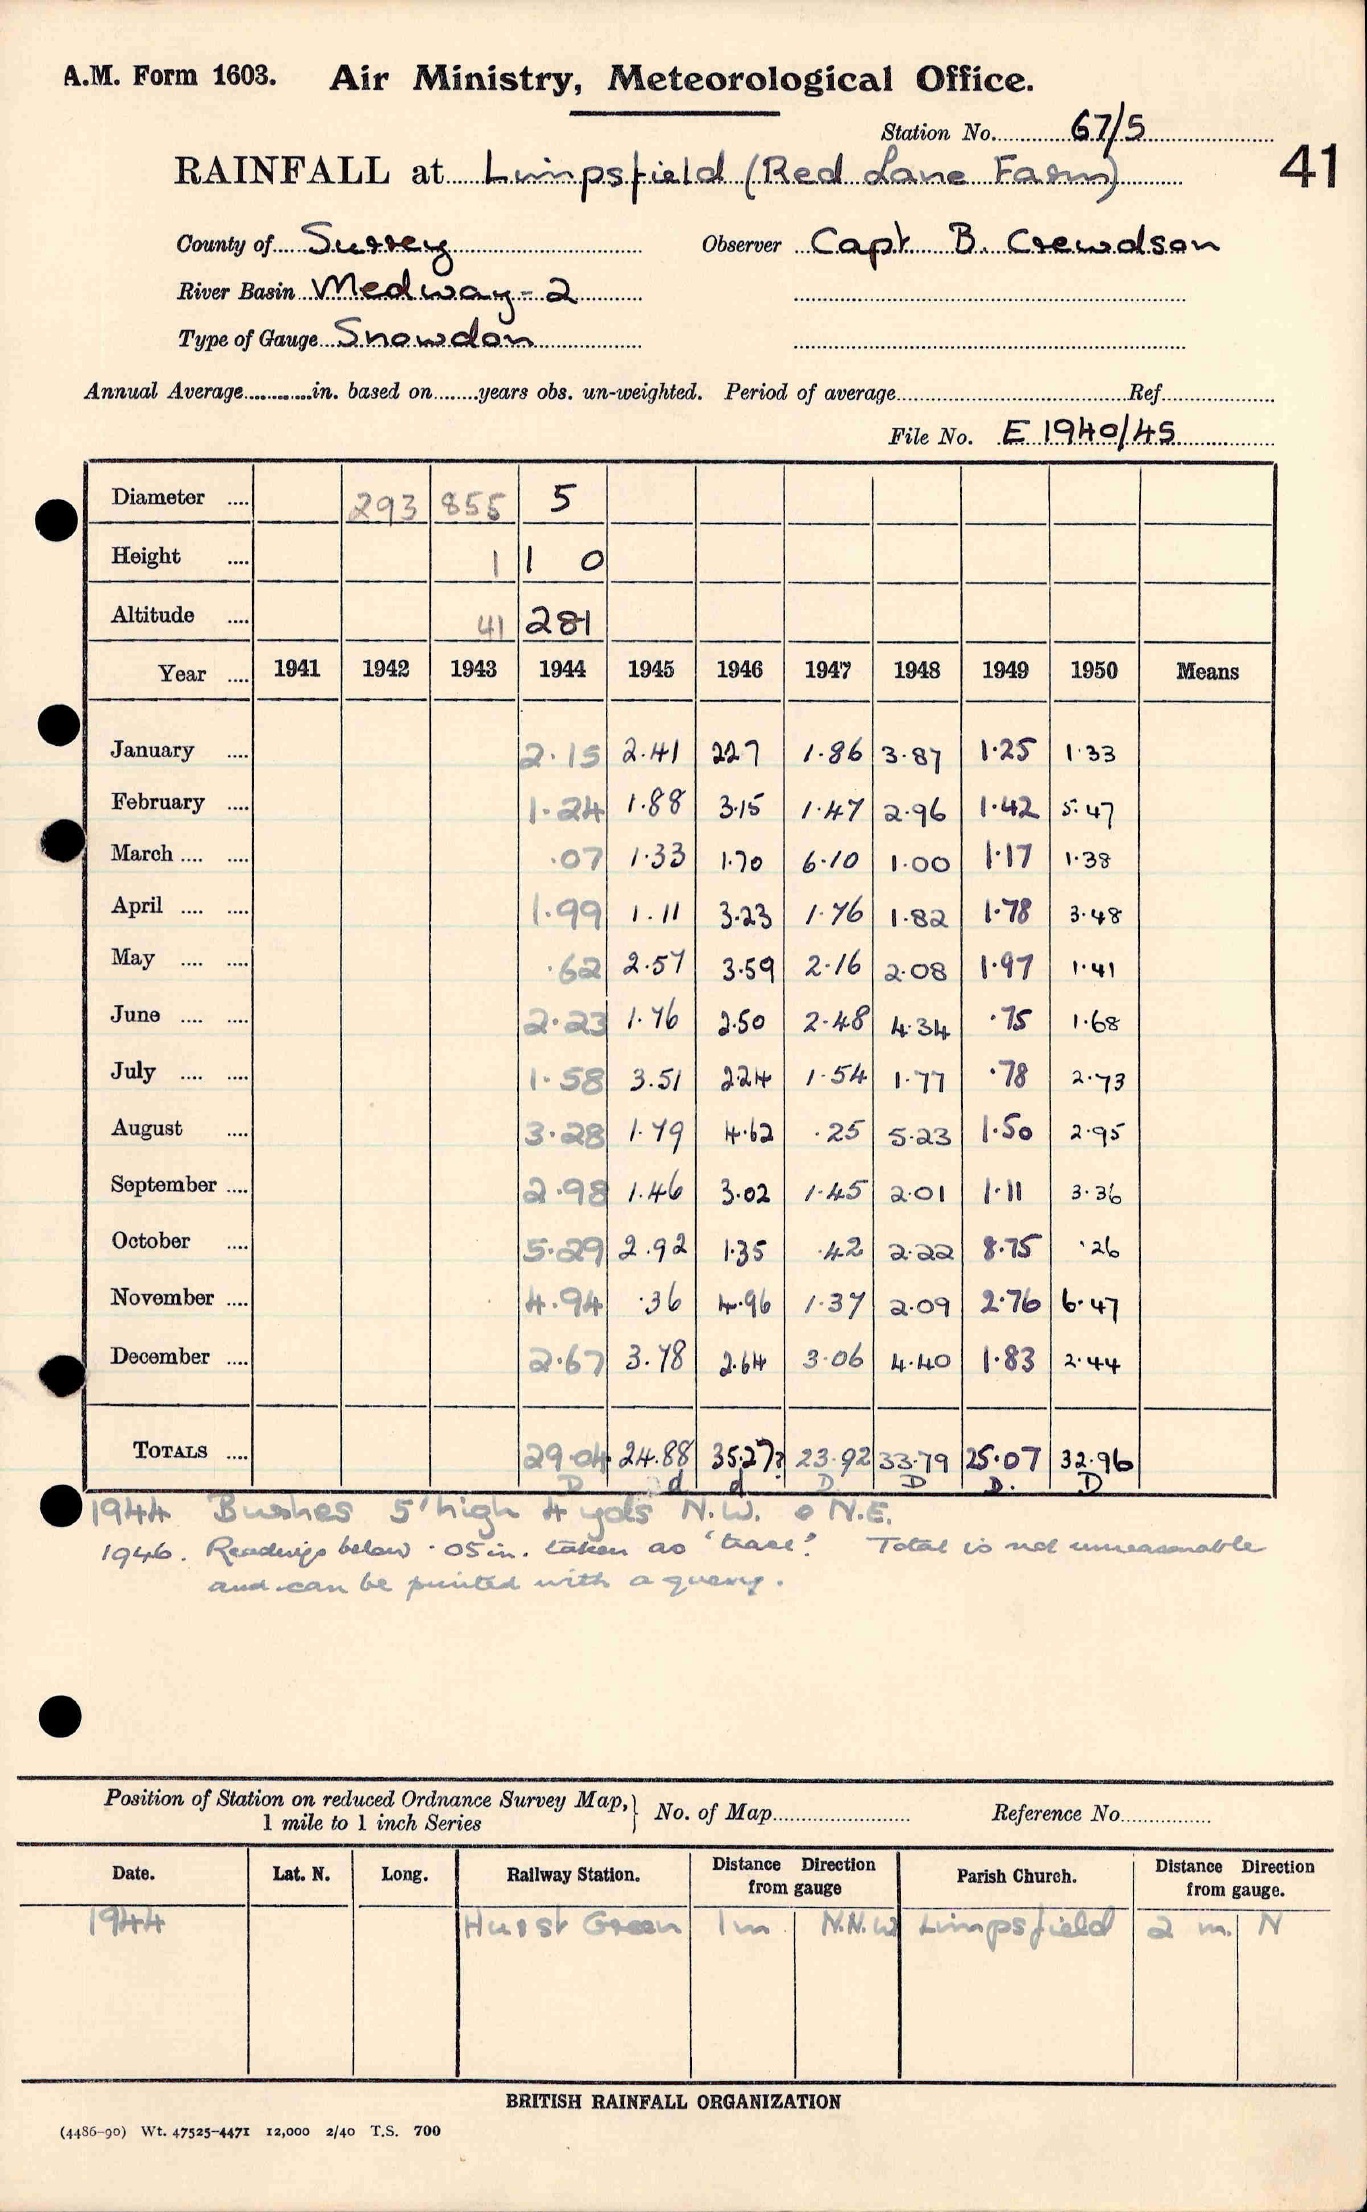 A.M. Form 1603. Air Ministry, Meteorological Office.
Station No. 67/5
41
RAINFALL at Limpsfield (Red Lane Farm)
County of Surrey Observer Capt B. Crewdson
River Basin Medway-2
Type of Gauge Snowdon
Annual Average in. based on years obs. un-weighted. Period of average Ref.
File No. E 1940/45
Diameter .... 293 855 5
Height .... 1 1 0
Altitude .... 41 281
Year .... 1941 1942 1943 1944 1945 1946 1947 1948 1949 1950 Means
January .... 2.15 2.41 2.27 1.86 3.87 1.25 1.33
February .... 1.24 1.88 3.15 1.47 2.96 1.42 5.47
March .... .... .07 1.33 1.70 6.10 1.00 1.17 1.38
April .... .... 1.99 1.11 3.23 1.76 1.82 1.78 3.48
May .... .... .62 2.57 3.59 2.16 2.08 1.97 1.41
June .... .... 2.23 1.76 2.50 2.48 4.34 .75 1.68
July .... .... 1.58 3.51 2.24 1.54 1.77 .78 2.73
August .... 3.28 1.79 4.62 .25 5.23 1.50 2.95
September .... 2.98 1.46 3.02 1.45 2.01 1.11 3.36
October .... 5.29 2.92 1.35 .42 2.22 8.75 .26
November .... 4.94 .36 4.96 1.37 2.09 2.76 6.47
December .... 2.67 3.78 2.64 3.06 4.40 1.83 2.44
TOTALS .... 29.04 24.88 35.27? 23.92 33.79 25.07 32.96
D d d D D D. D
1944 Bushes 5' high 4 yds N.W. & N.E.
1946. Readings below .05 in. taken as 'trace'. Total is not unreasonable
and can be printed with a query.
Position of Station on reduced Ordnance Survey Map,
1 mile to 1 inch Series } No. of Map Reference No.
Date. Lat. N. Long. Railway Station. Distance Direction from gauge Parish Church. Distance Direction from gauge.
1944 Hurst Green 1m N.N.W Limpsfield 2 m. N
BRITISH RAINFALL ORGANIZATION
(4486-90) Wt. 47525-4471 12,000 2/40 T.S. 700